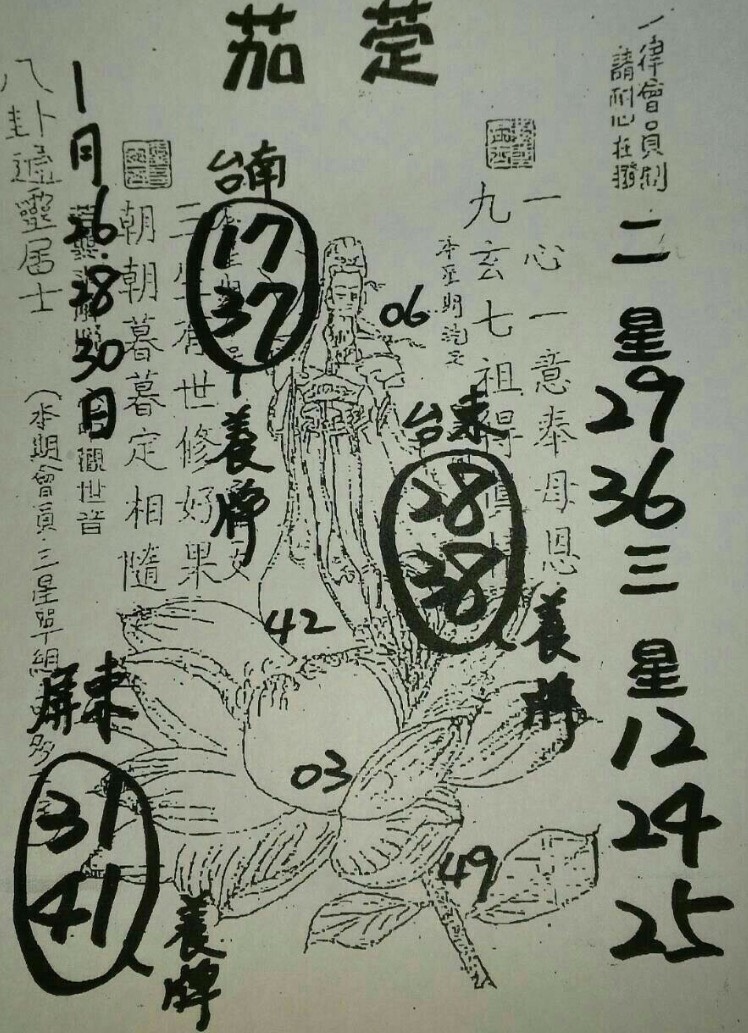 茄萣
一律會員制
請耐心在撥
二
星
29
36
三
星
12
24
25
一心一意奉母恩
九玄七祖得
06
台東
28
38
養牌
台南
17
37
養牌
三生有世修好果
朝朝暮暮定相隨
1月
26.28
30日
觀世音
八卦道靈居士
(本期會員三星單組
42
03
49
屏東
31
41
養牌